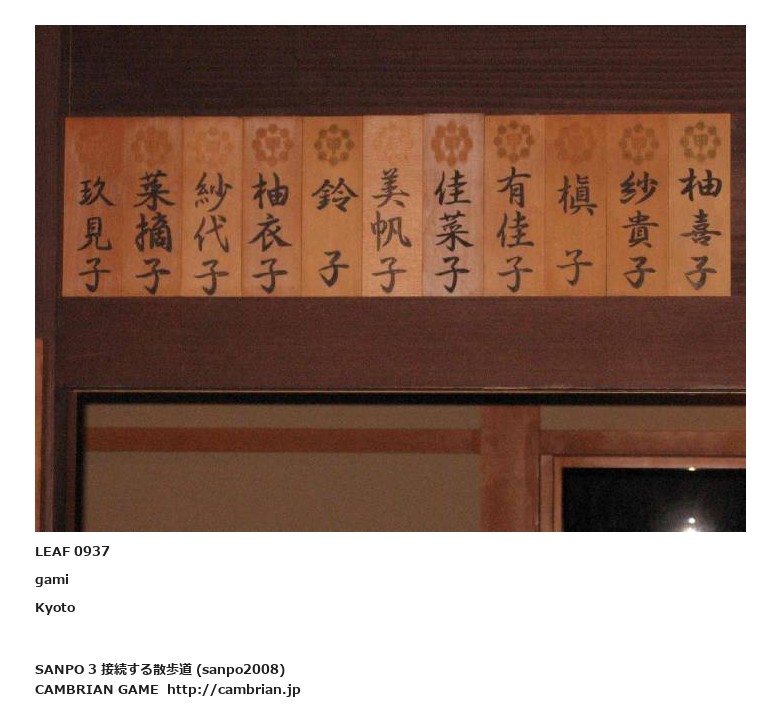 柚喜子
紗貴子
槇子
有佳子
佳菜子
美帆子
鈴子
柚衣子
紗代子
菜摘子
玖見子
LEAF 0937
gami
Kyoto
SANPO 3 接続する散歩道 (sanpo2008)
CAMBRIAN GAME http://cambrian.jp